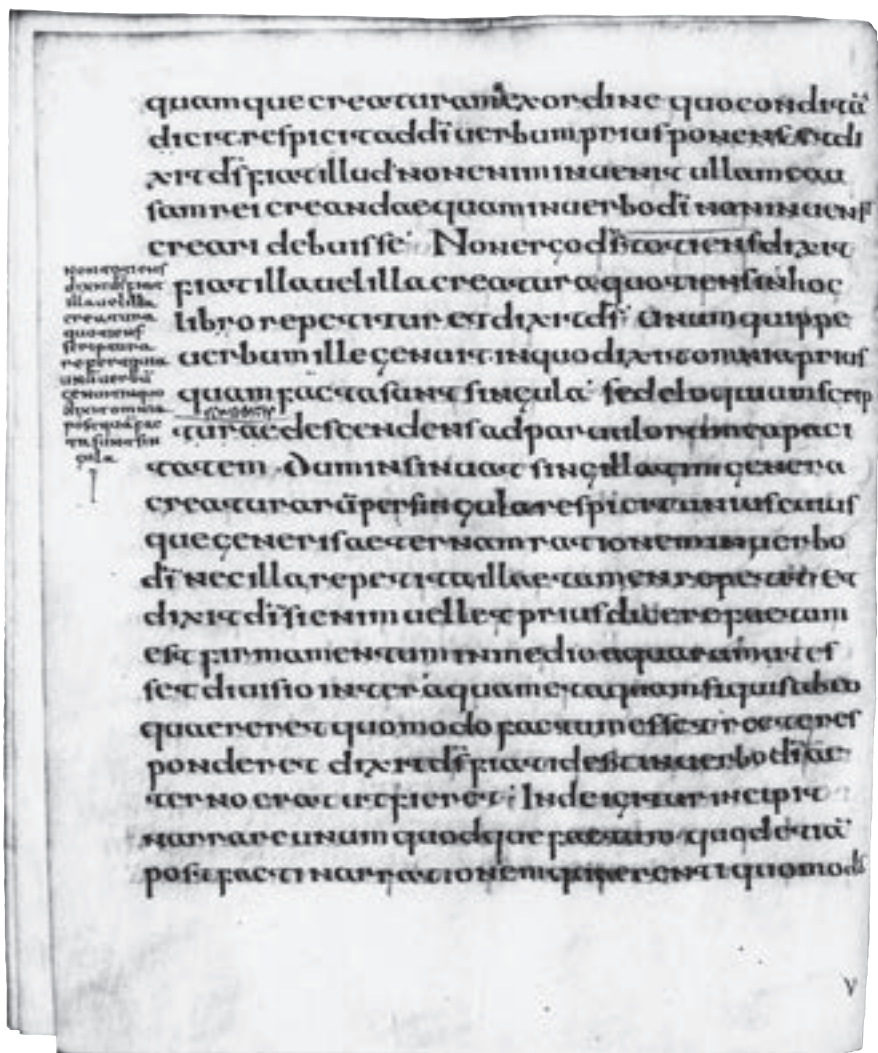 quamque creaturam ex ordine quo conditā
dicit respicit ad dī uerbum prius ponens et di
xit dſ fiat illud non enim inuenit ullam cau
sam rei creandae quam in uerbo dī non inuenis
creari debuisse Non ergo dſ totiens dixit
fiat illa uel illa creatura quotiens in hoc
libro repetitur et dixit dſ unum quippe
uerbum ille genuit in quo dixit omnia prius
quam facta sunt singula sed eloquium scrip
turae descendens ad paruulorum capaci
tatem Dum insinuat singillatim genera
creaturarū per singula respicit unius cuius
que generis aeternam rationem in uerbo
dī nec illa repetita illae tamen repetiuit et
dixit dſ si enim uellet prius dicere factum
est firmamentum in medio aquarum ut es
set diuisio inter aquam et aquam si quis ab eo
quaereret quomodo factum esset recte res
ponderet dixit dſ fiat id est in uerbo dī ae
terno erat ut fieret Inde igitur incipit
narrare unum quodque factum quod etiā
post facti narrationem quaerenti quomodo
non totiens
dixit dſ fiat
illa uel illa
creatura
quotiens
scriptura
repetit quia
unū uerbū
genuit in quo
dixit omnia
postquā fac
ta sunt sin
gula
V